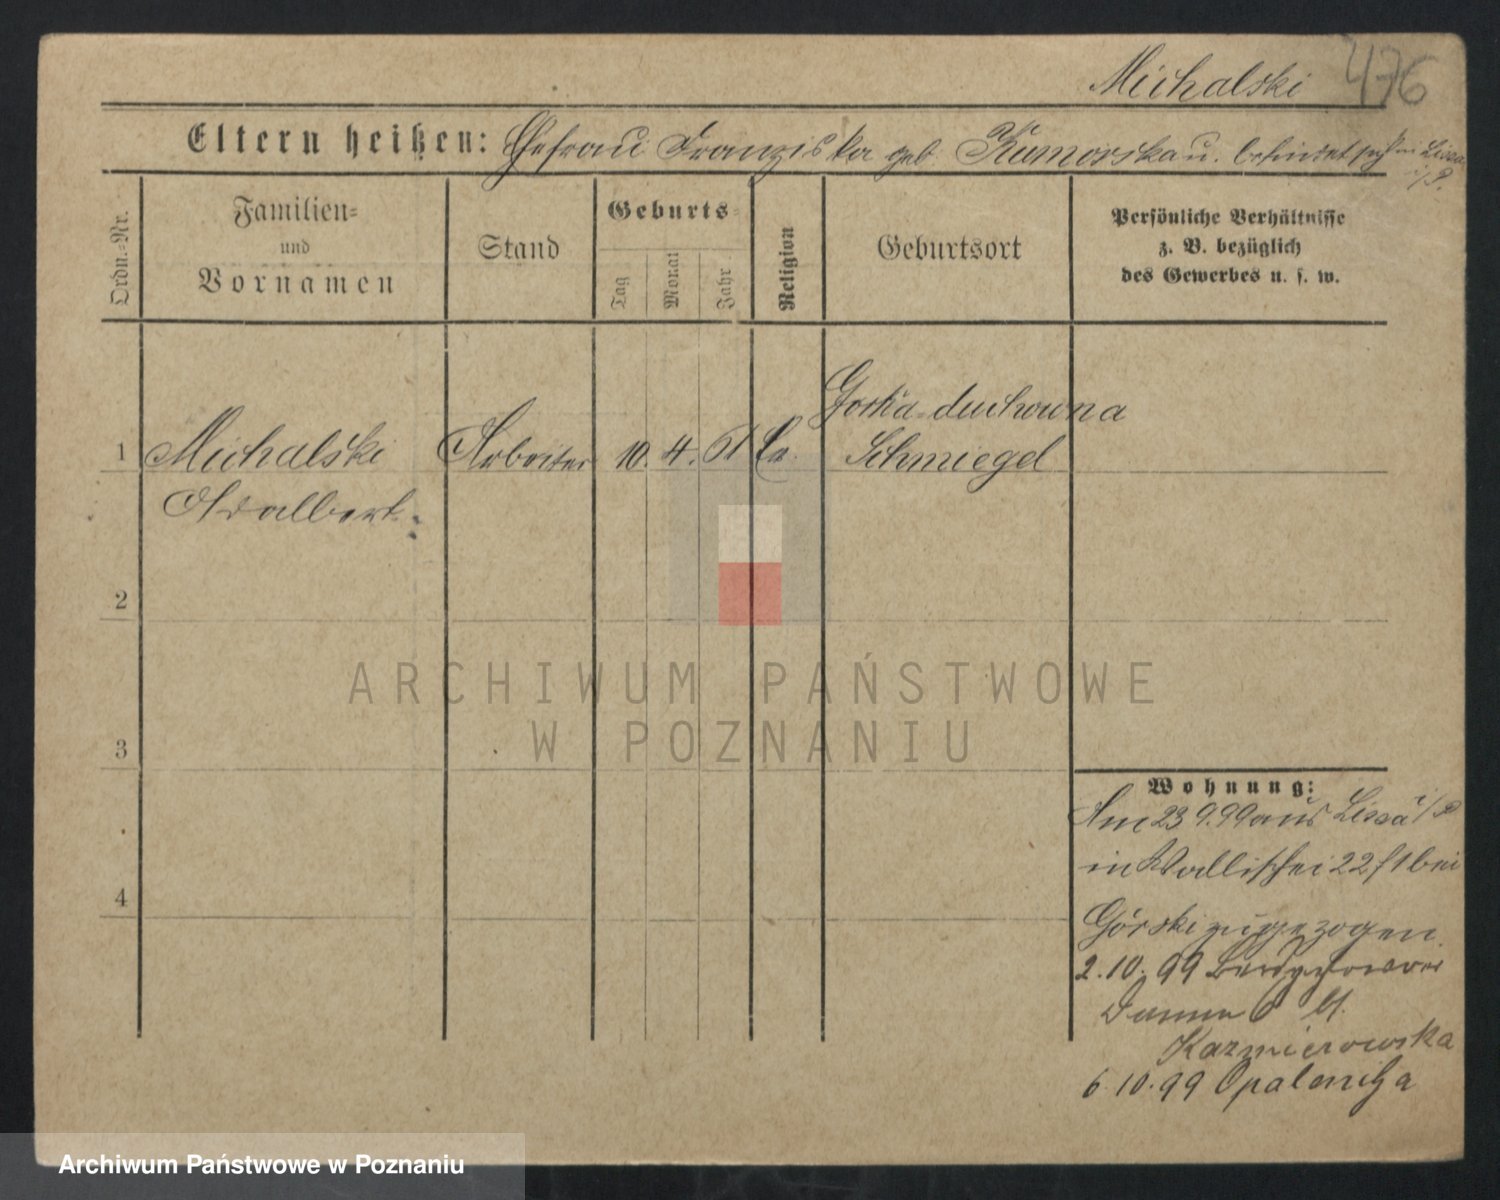 Michalski 476
Eltern heißen: Ehefrau Franziska geb. Kumorska u. befindet sich in Lissa
i/P.
Ordn.-Nr.
Familien-
und
Vornamen
Stand
Geburts-
Tag
Monat
Jahr
Religion
Geburtsort
Persönliche Verhältnisse
z. B. bezüglich
des Gewerbes u. s. w.
1 Michalski Arbeiter 10. 4. 61
Adalbert
Gorka duchowna
Schmiegel
2
3
4
Wohnung:
Am 23 9.99 aus Lissa i/P
in Wallischei 22 bei
Górski zugezogen
2.10.99
Damm 6
Kazmierowska
6.10.99 Opalenitza
ARCHIWUM PAŃSTWOWE
W POZNANIU
Archiwum Państwowe w Poznaniu